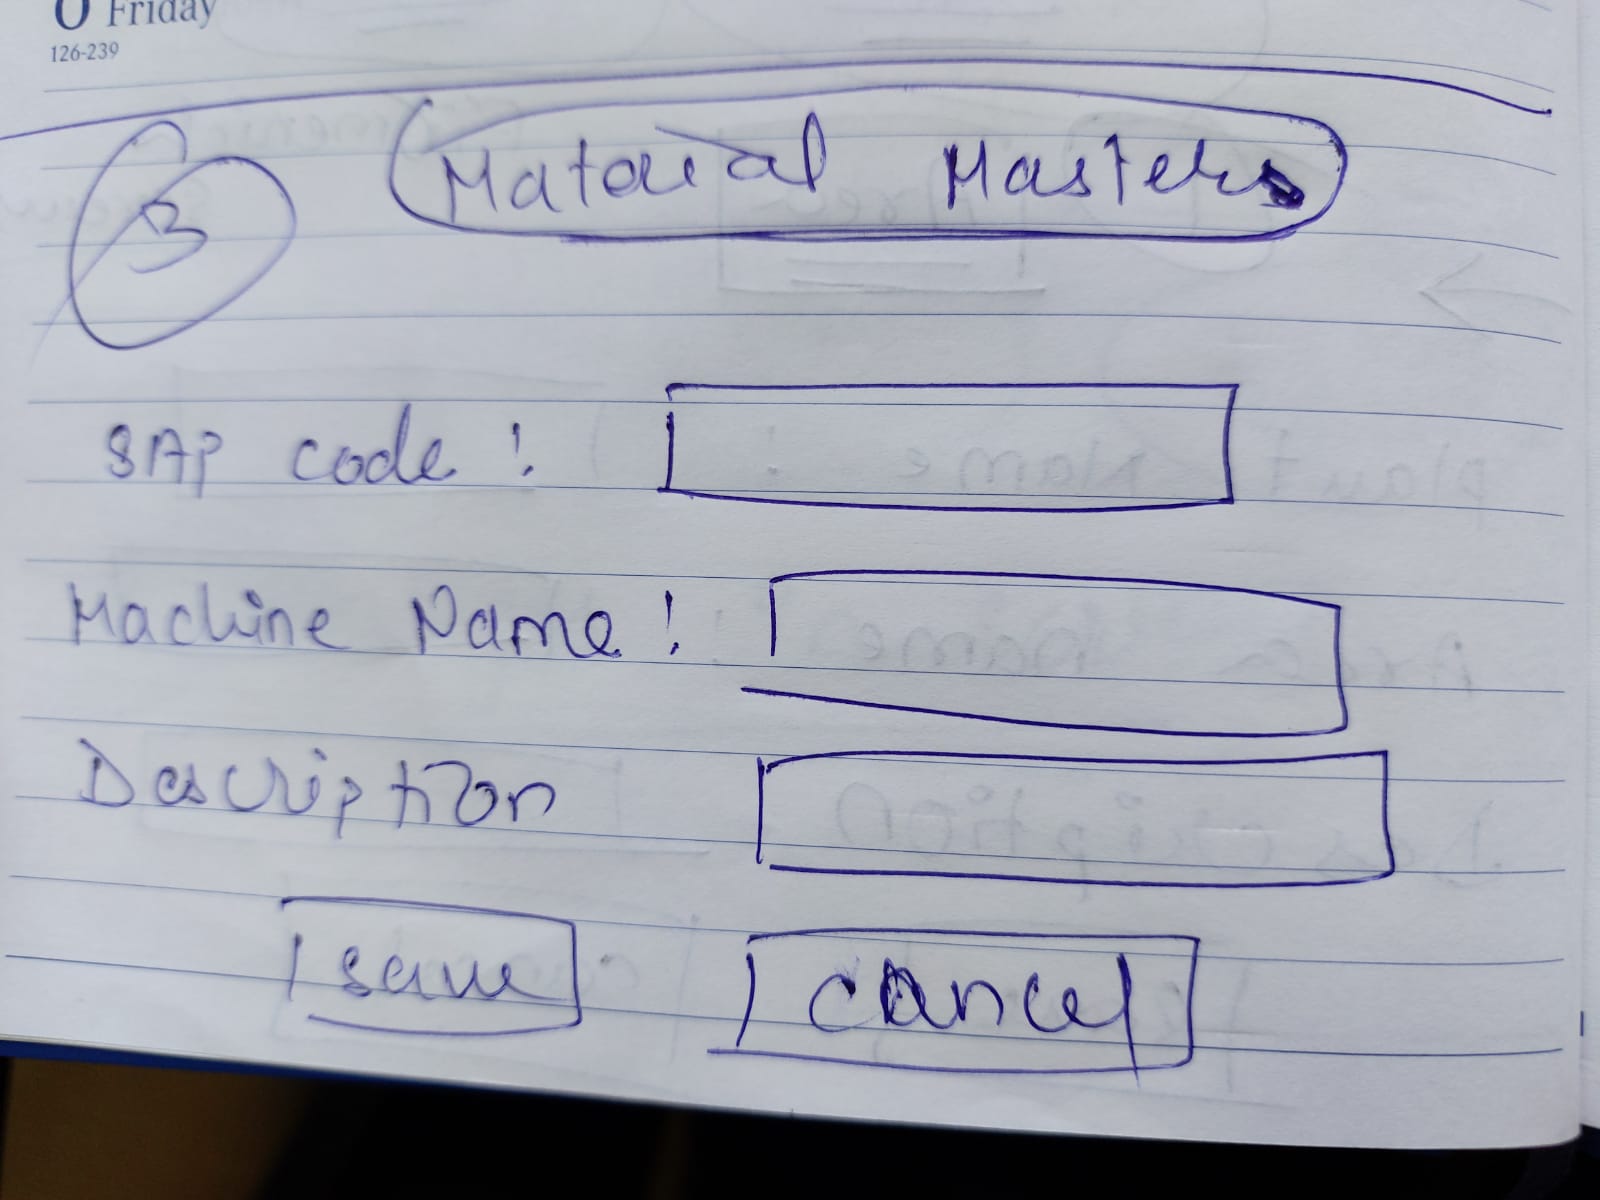 Friday
126-239
3
Material Master
SAP code :
Machine Name :
Description
save
cancel